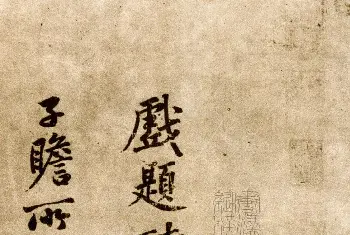 戲題
子瞻所